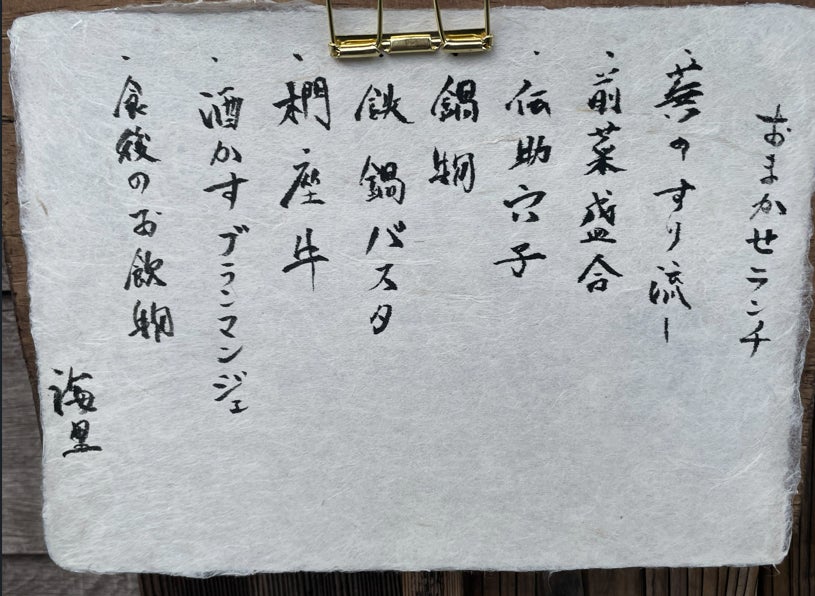 おまかせランチ
・蕪のすり流し
・前菜盛合
・伝助穴子
鍋物
鉄鍋パスタ
・椚座牛
・酒かすブランマンジェ
・食後のお飲物
海里